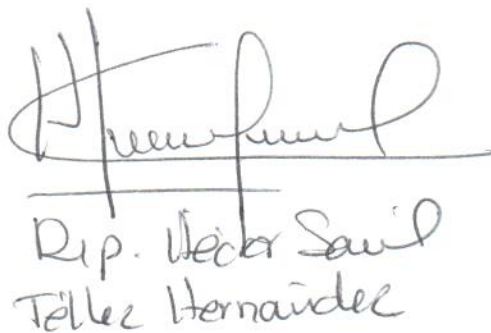 Dip. Héctor Saúl
Téllez Hernández